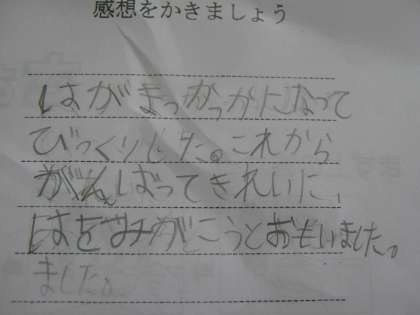 感想をかきましょう
はがまっかっかになって
びっくりした。これから
がんばってきれいに、
はをみがこうとおもいました。
ました。